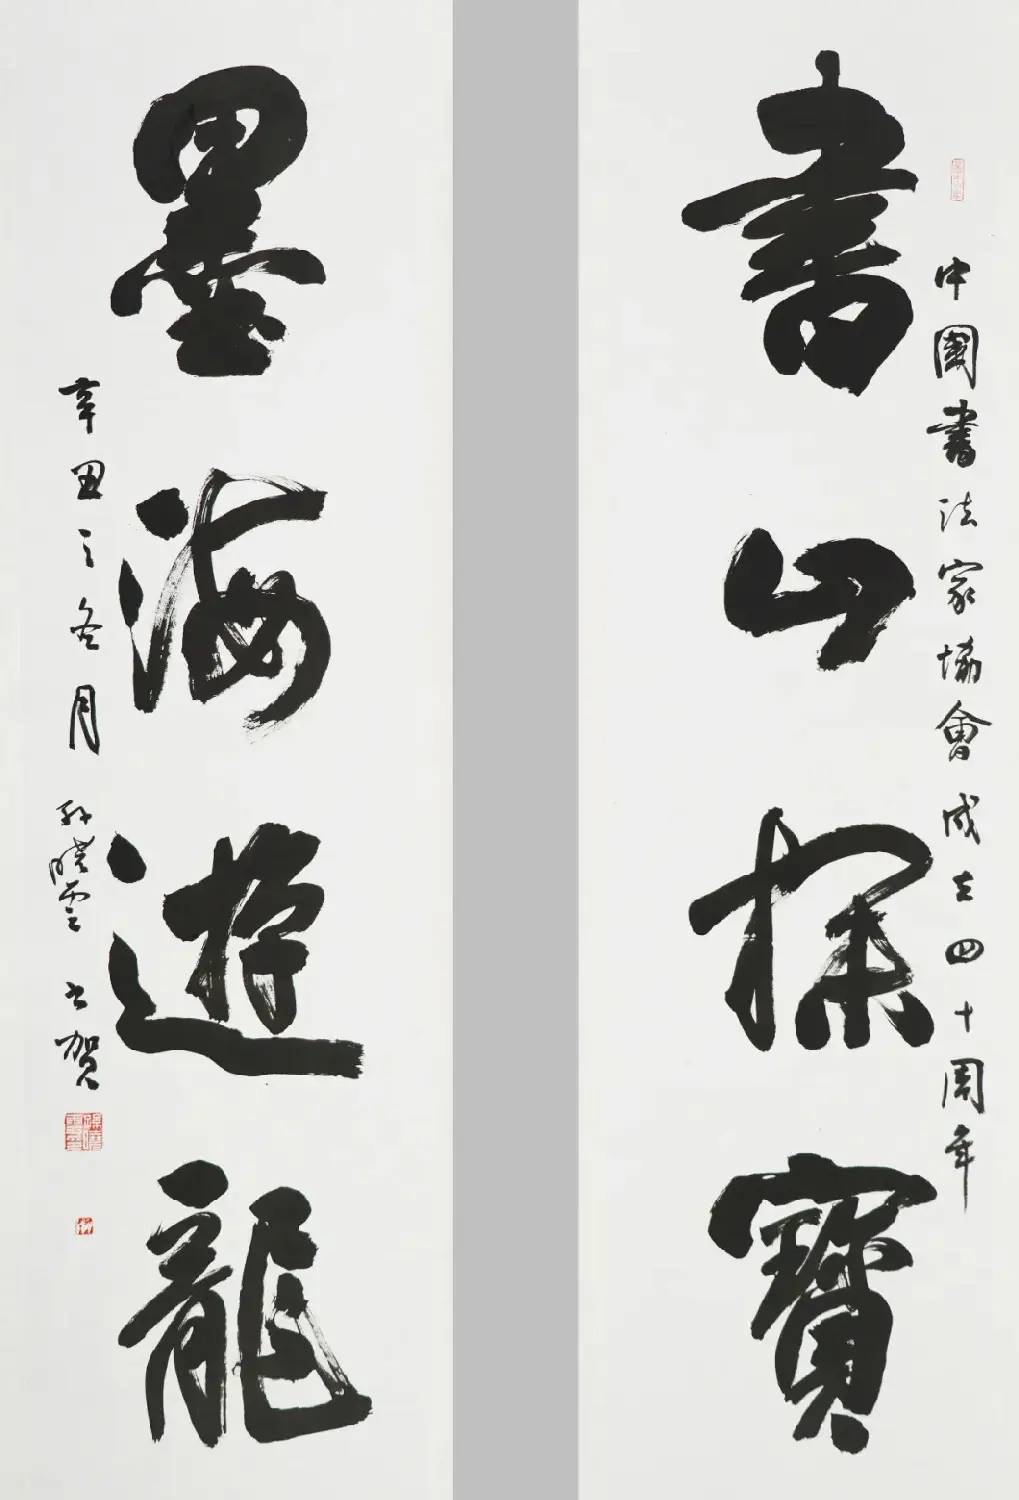 中國書法家協會成立四十周年
書山探寶
墨海遊龍
辛丑之冬月 孫曉雲書賀